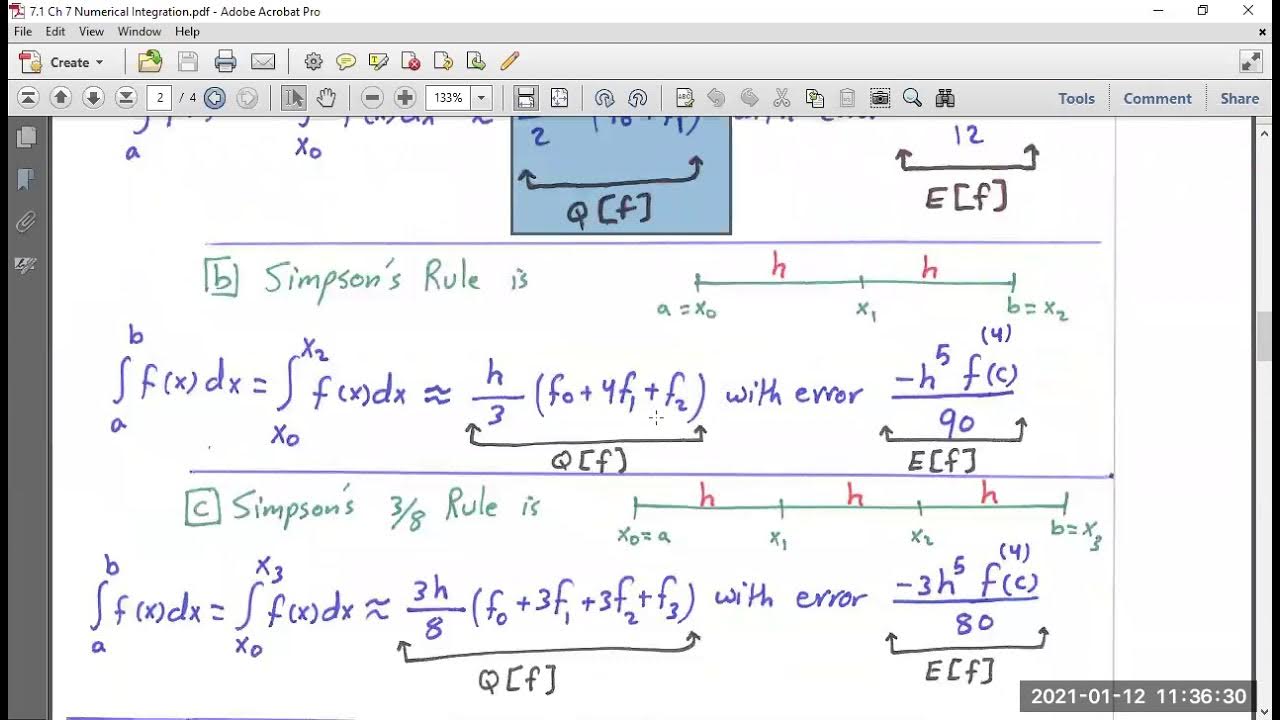 7.1 Ch 7 Numerical Integration.pdf - Adobe Acrobat Pro
File Edit View Window Help
Create
2 / 4 133% Tools Comment Share
a x₀ 2 12
Q[f] E[f]
b Simpson's Rule is h h
a = x₀ x₁ b = x₂
∫ₐᵇ f(x)dx = ∫ₓ₀ˣ² f(x)dx ≈ h/3 (f₀ + 4f₁ + f₂) with error -h⁵ f⁽⁴⁾(c)/90
Q[f] E[f]
c Simpson's 3/8 Rule is h h h
x₀ = a x₁ x₂ b = x₃
∫ₐᵇ f(x)dx = ∫ₓ₀ˣ³ f(x)dx ≈ 3h/8 (f₀ + 3f₁ + 3f₂ + f₃) with error -3h⁵ f⁽⁴⁾(c)/80
Q[f] E[f]
2021-01-12 11:36:30